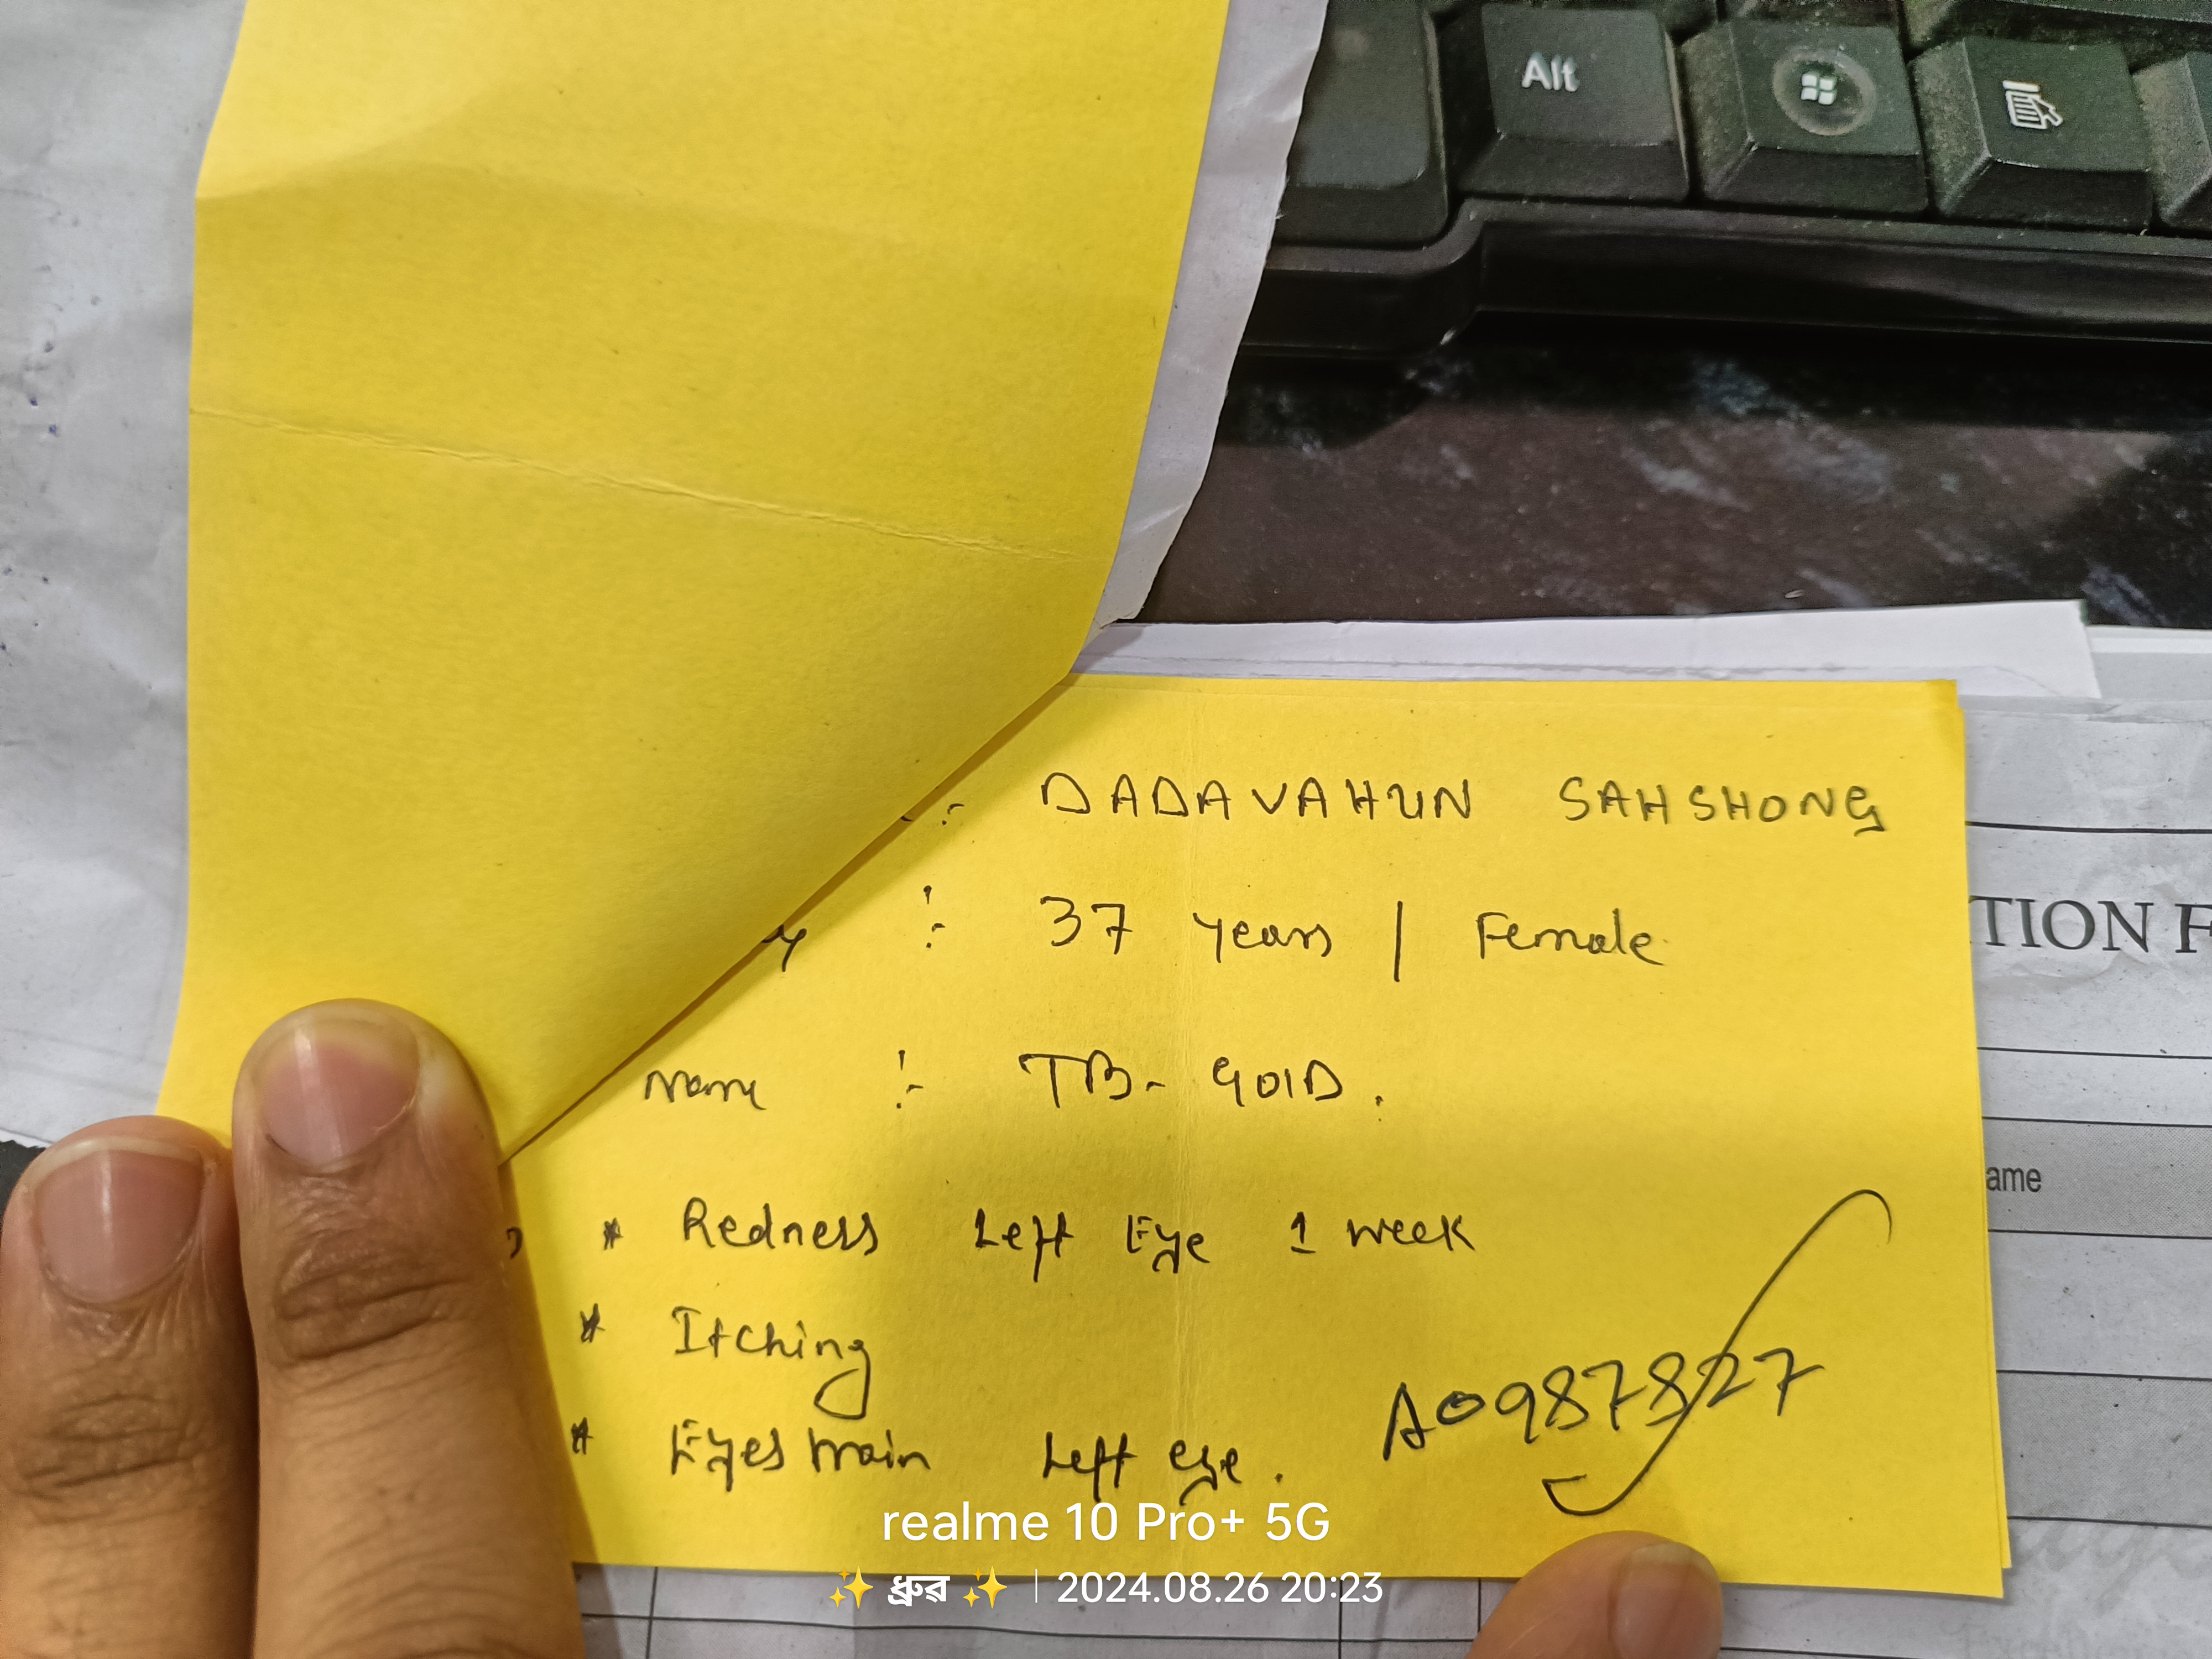 Alt
:- DADAVAHUN SAHSHONG
TION F
y :- 37 years / Female
Name :- TB- GOLD.
ame
* Redness Left Eye 1 week
* Itching
A0987827
* Eyestrain Left eye.
realme 10 Pro+ 5G
✨ ধ্ৰুৱ ✨ | 2024.08.26 20:23